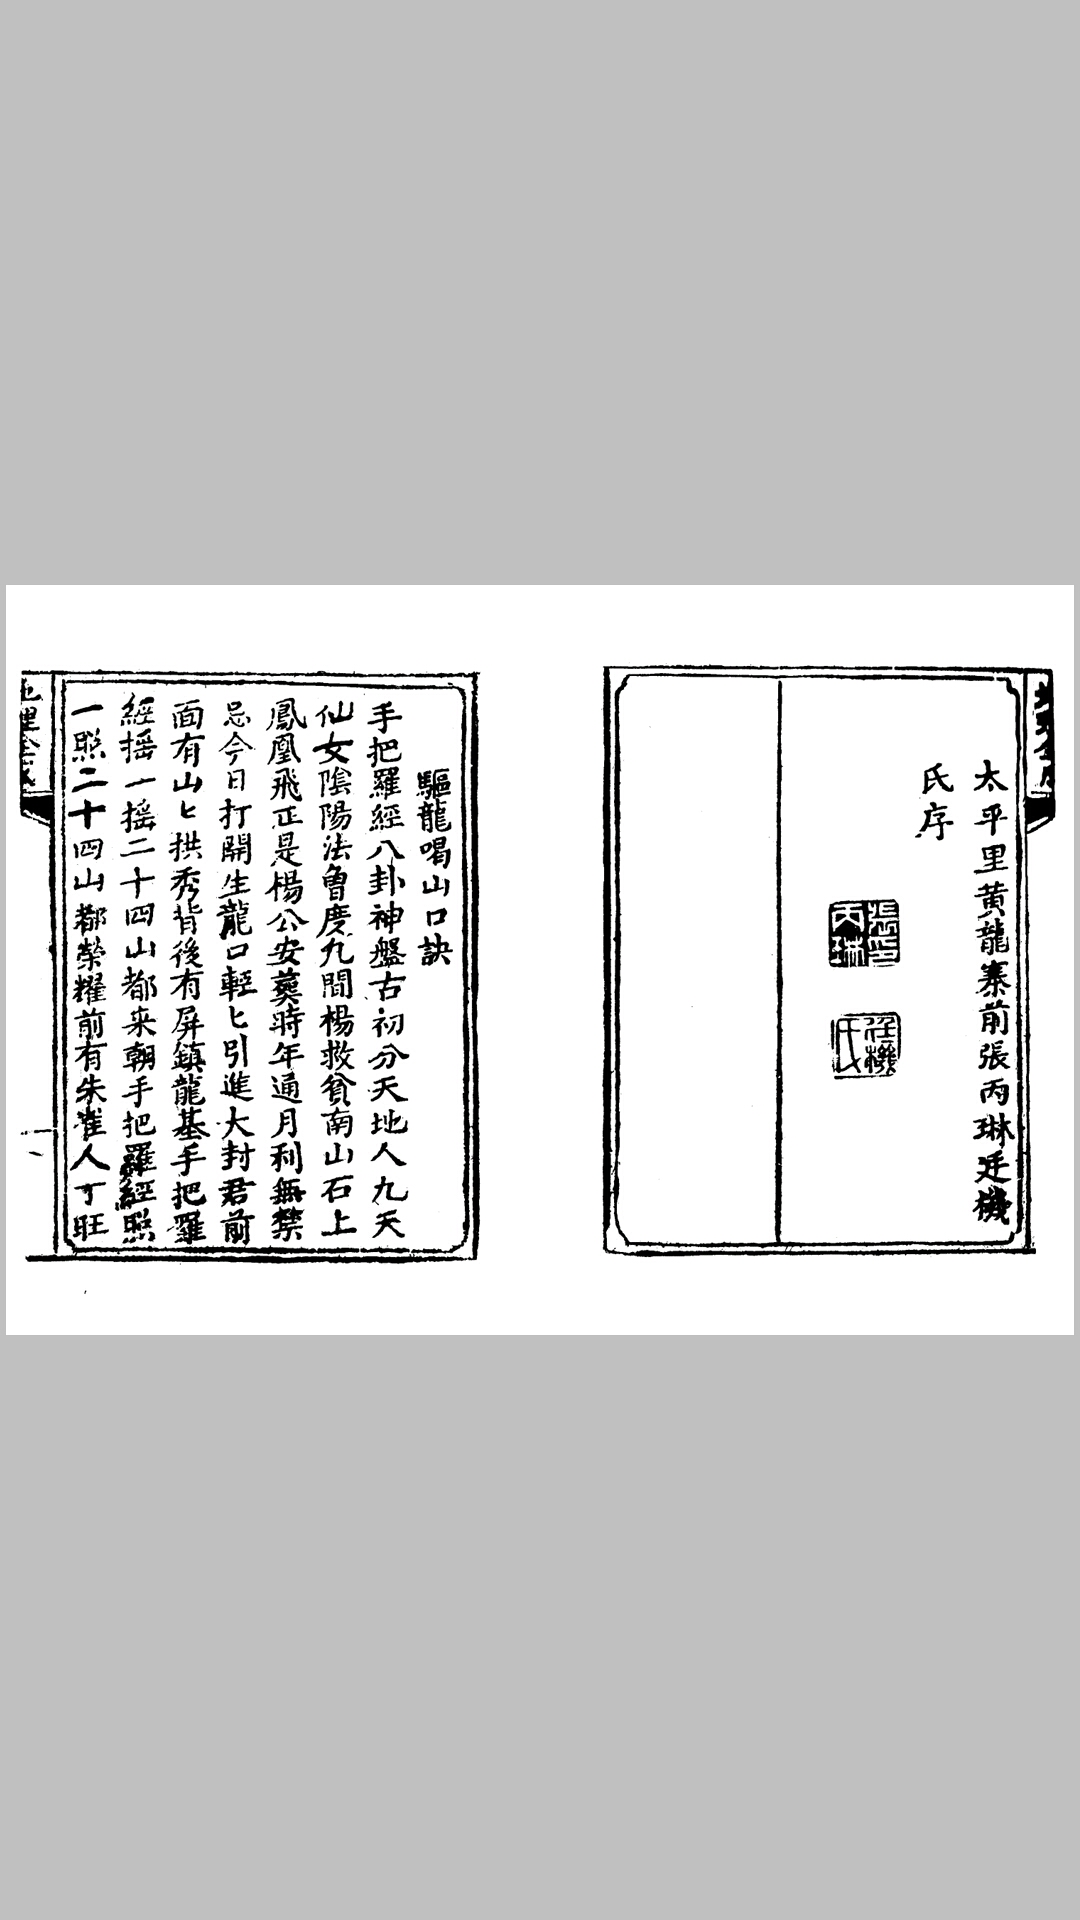 太平里黄龍寨前張丙琳廷機
氏序
張印丙琳
廷機氏
驅龍喝山口訣
手把羅經八卦神盤古初分天地人九天
仙女陰陽法曾度九間楊救貧南山石上
鳳凰飛正是楊公安葬時年通月利無禁
忌今日打開生龍口輕匕引進大封君前
面有山匕拱秀背後有屏鎮龍基手把羅
經摇一摇二十四山都来朝手把羅經照
一照二十四山都榮耀前有朱雀人丁旺